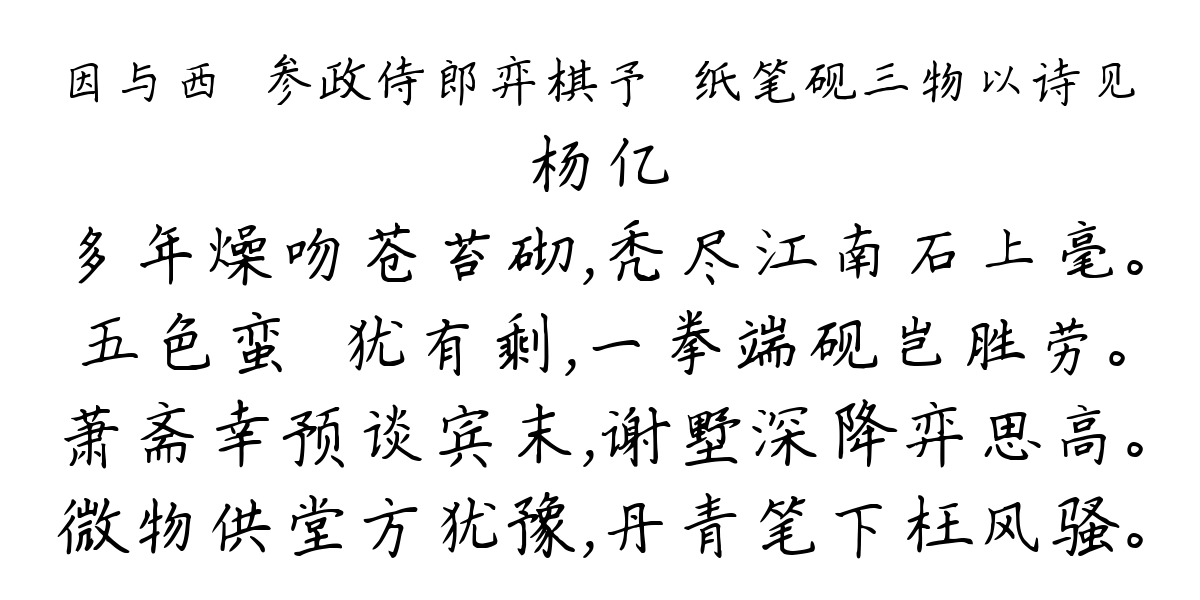 因与西 参政侍郎弈棋予 纸笔砚三物以诗见
杨亿
多年燥吻苍苔砌,秃尽江南石上毫。
五色蛮 犹有剩,一拳端砚岂胜劳。
萧斋幸预谈宾末,谢墅深降弈思高。
微物供堂方犹豫,丹青笔下枉风骚。